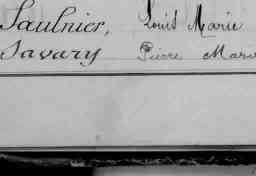 Saulnier, Louis Marie
Savary Pierre Marie